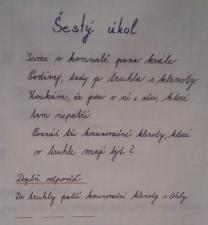 Šestý úkol
Jsme v komnatě pana krále
Podívej, tady je truhla s klenoty
Koukám, že jsou v ní i věci, které
tam nepatří
Poznáš tři korunovační klenoty, které
v truhle mají být?
Doplň odpověď
Do truhly patří korunovační klenoty s čísly